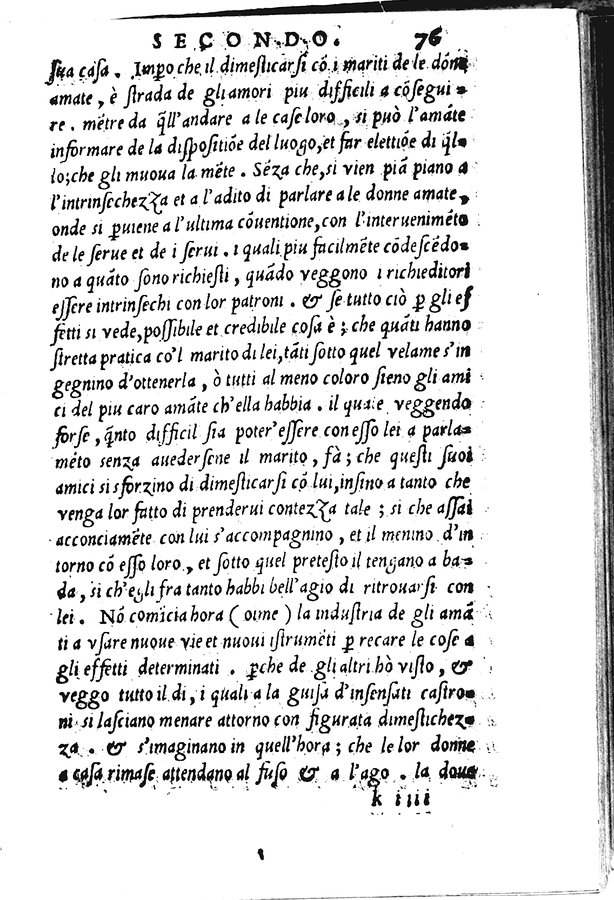 SECONDO. 76
sua casa. Imꝑo che il dimesticarsi cõ i mariti de le dõne
amate, è strada de gli amori piu difficili a cõsegui=
re. mẽtre da q̃ll'andare a le case loro, si può l'amãte
informare de la dispositiõe del luogo, et far elettiõe di q̃l
lo; che gli muoua la mẽte. Sẽza che, si vien piã piano a
l'intrinsechezza et a l'adito di parlare a le donne amate,
onde si ꝑuiene a l'ultima cõuentione, con l'interuenimẽto
de le serue et de i serui. i quali piu facilmẽte cõdescẽdo=
no a quãto sono richiesti, quãdo veggono i richieditori
essere intrinsechi con lor patroni. & se tutto ciò ꝑ gli ef
fetti si vede, possibile et credibile cosa è; che quãti hanno
stretta pratica co'l marito di lei, tãti sotto quel velame s'in
gegnino d'ottenerla, ò tutti al meno coloro sieno gli ami
ci del piu caro amãte ch'ella habbia. il quale veggendo
forse, q̃nto difficil sia poter'essere con esso lei a parla=
mẽto senza auedersene il marito, fà; che questi suoi
amici si sforzino di dimesticarsi cõ lui, insino a tanto che
venga lor fatto di prenderui contezza tale; si che assai
acconciamẽte con lui s'accompagnino, et il menino d'in
torno cõ esso loro, et sotto quel pretesto il tengano a ba=
da, si ch'egli fra tanto habbi bell'agio di ritrouarsi con
lei. Nõ comĩcia hora (oime) la industria de gli amã
ti a vsare nuoue vie et nuoui istrumẽti ꝑ recare le cose a
gli effetti determinati. ꝑche de gli altri hò visto, &
veggo tutto il di, i quali a la guisa d'insensati castro=
ni si lasciano menare attorno con figurata dimestichez=
za. & s'imaginano in quell'hora; che le lor donne
a casa rimase attendano al fuso & a l'ago. la doue
k iiii